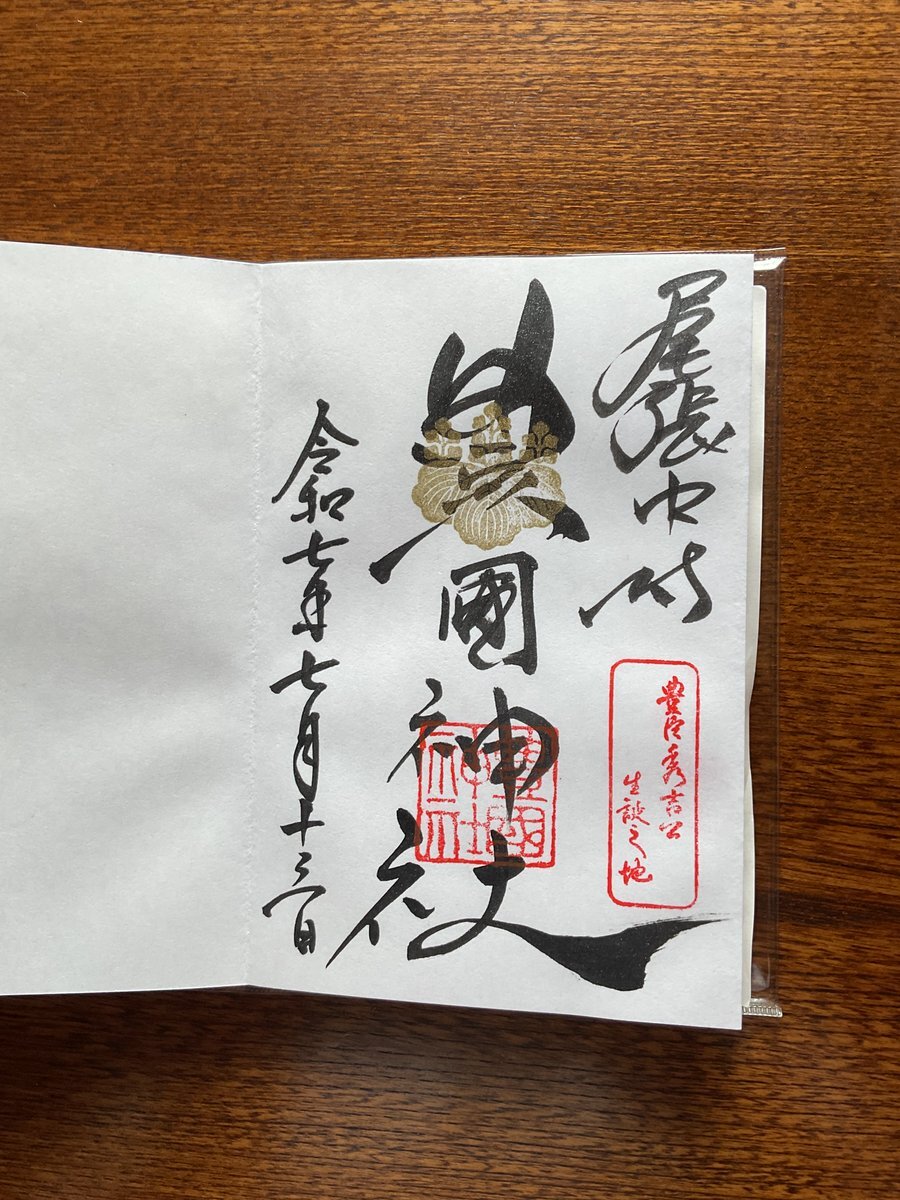 尾張中村
豊臣秀吉公
生誕之地
豊國神社
豊國
神社
令和七年七月十三日